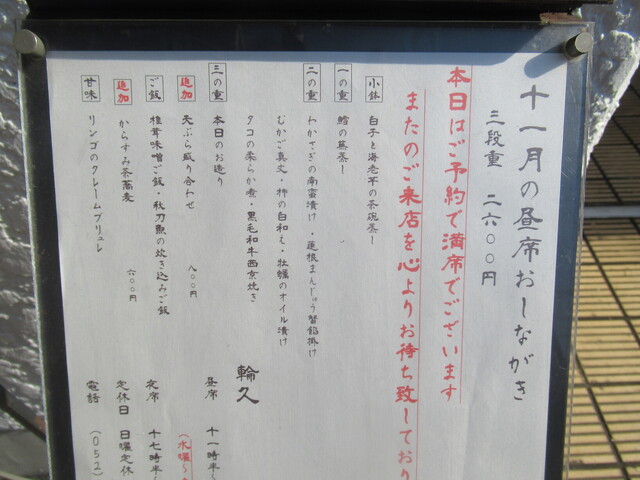 十一月の昼席おしながき
三段重 二六〇〇円
本日はご予約で満席でございます
またのご来店を心よりお待ち致しており
小鉢 白子と海老芋の茶碗蒸し
一の重 鱈の蕪蒸し
二の重 わかさぎの南蛮漬け・蓮根まんじゅう蟹餡掛け
むかご真丈・柿の白和え・牡蠣のオイル漬け
タコの柔らか煮・黒毛和牛西京焼き
三の重 本日のお造り
追加 天ぷら盛り合わせ 八〇〇円
ご飯 椎茸味噌ご飯・秋刀魚の炊き込みご飯
追加 からすみ茶蕎麦 六〇〇円
甘味 リンゴのクレームブリュレ
輪久
昼席 十一時半~
(水曜~
夜席 十七時半~
定休日 日曜定休
電話 (052)